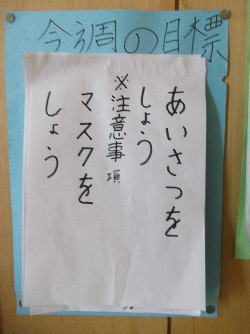 今週の目標
あいさつを
しょう
※注意事項
マスクを
しょう